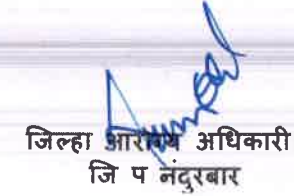 जिल्हा आरोग्य अधिकारी
जि प नंदुरबार